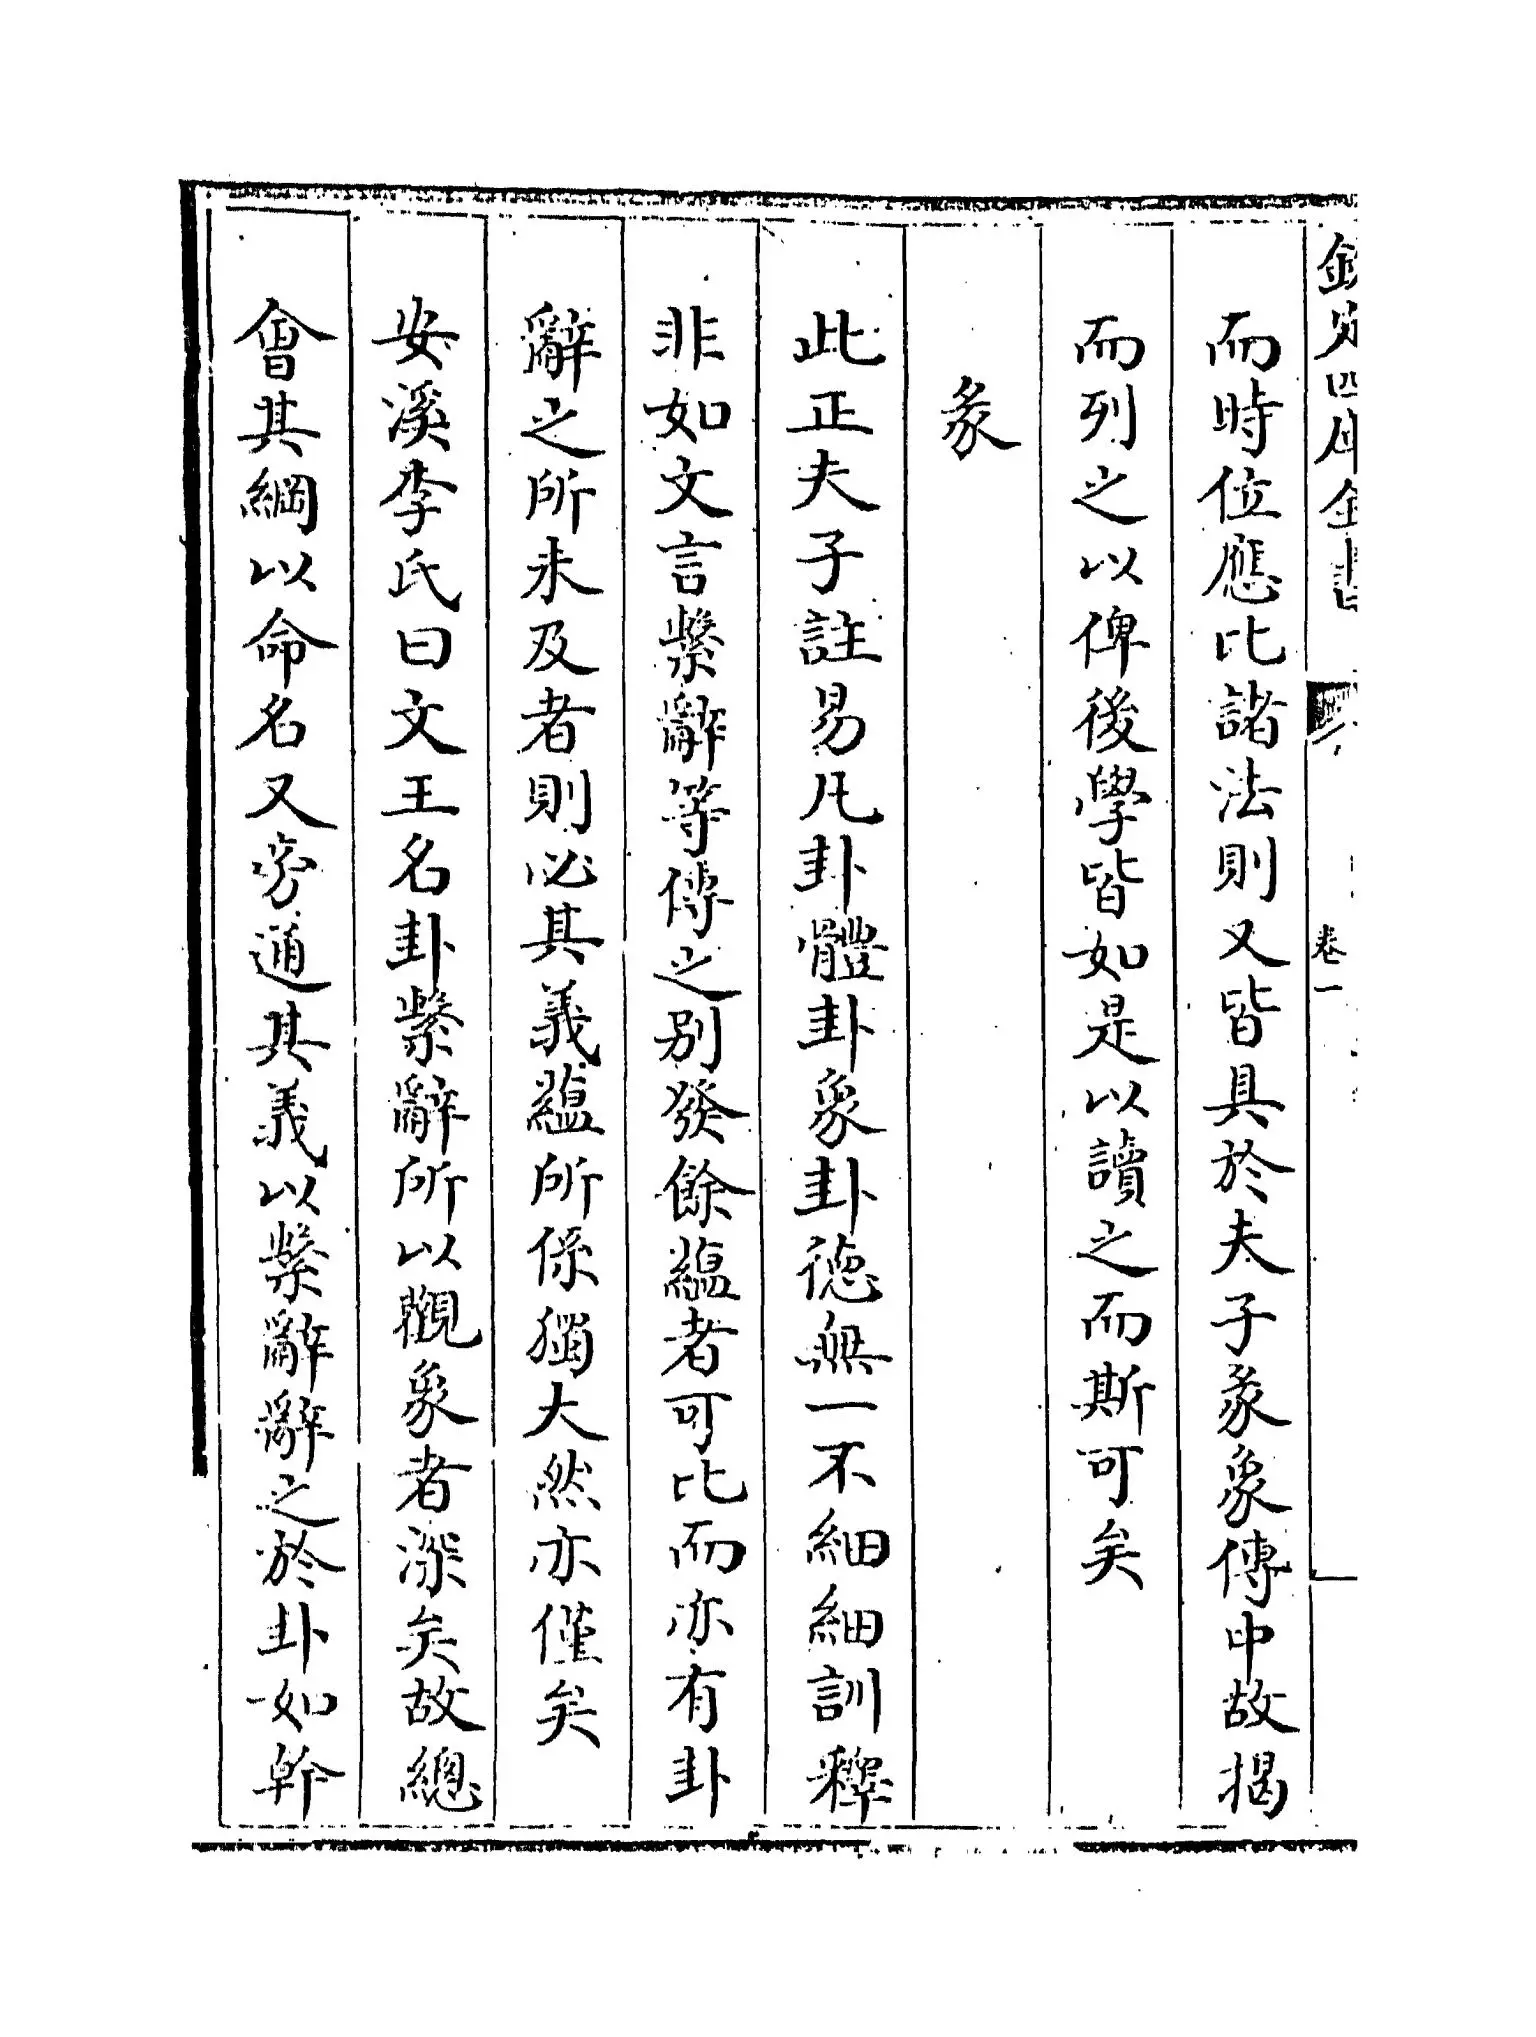 欽定四庫全書
卷一
而時位應比諸法則又皆具於夫子彖象傳中故揭
而列之以俾後學皆如是以讀之而斯可矣
彖
此正夫子註易凡卦體卦象卦德無一不細細訓釋
非如文言繫辭等傳之別發餘蘊者可比而亦有卦
辭之所未及者則必其義蘊所係獨大然亦僅矣
安溪李氏曰文王名卦繫辭所以觀象者深矣故總
會其綱以命名又旁通其義以繫辭辭之於卦如幹